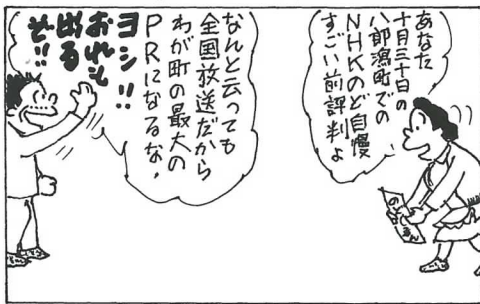 あなた
十月三十日の
八郎潟町での
NHKのど自慢
すごい前評判よ
なんと云っても
全国放送だから
わが町の最大の
PRになるな、
ヨシ!!
おれも
出る
ぞ!!